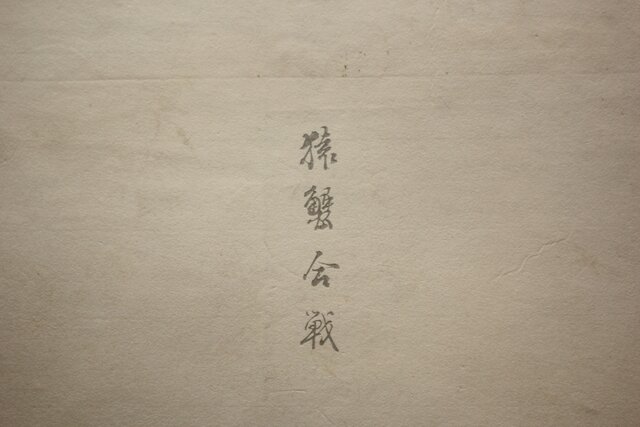 猿蟹合戦